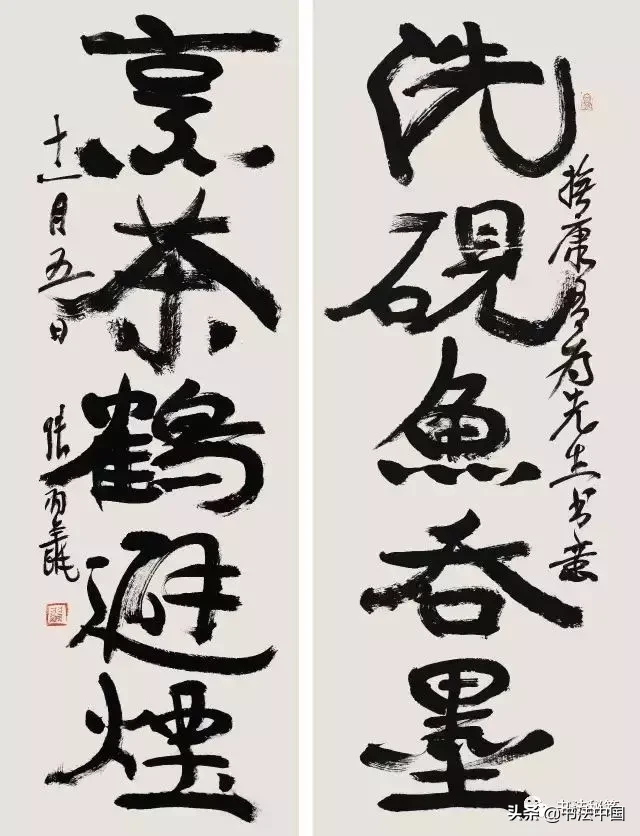 洗硯魚吞墨
康有为先生书意
烹茶鶴避煙
十一月五日
張羽翔
头条 @书法中国